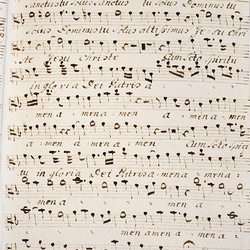 Sanctus tu solus Sanctus tu solus Dominus tu
solus Dominus tu solus altissimus Je su Chri
ste Je su Christe Cum Sto Spiritu
in gloria Dei Patris a
men a men a men a
a men a men a men a Cum Sto Spiri
tu in gloria Dei Patris a men a
men a men a
men a men a men a